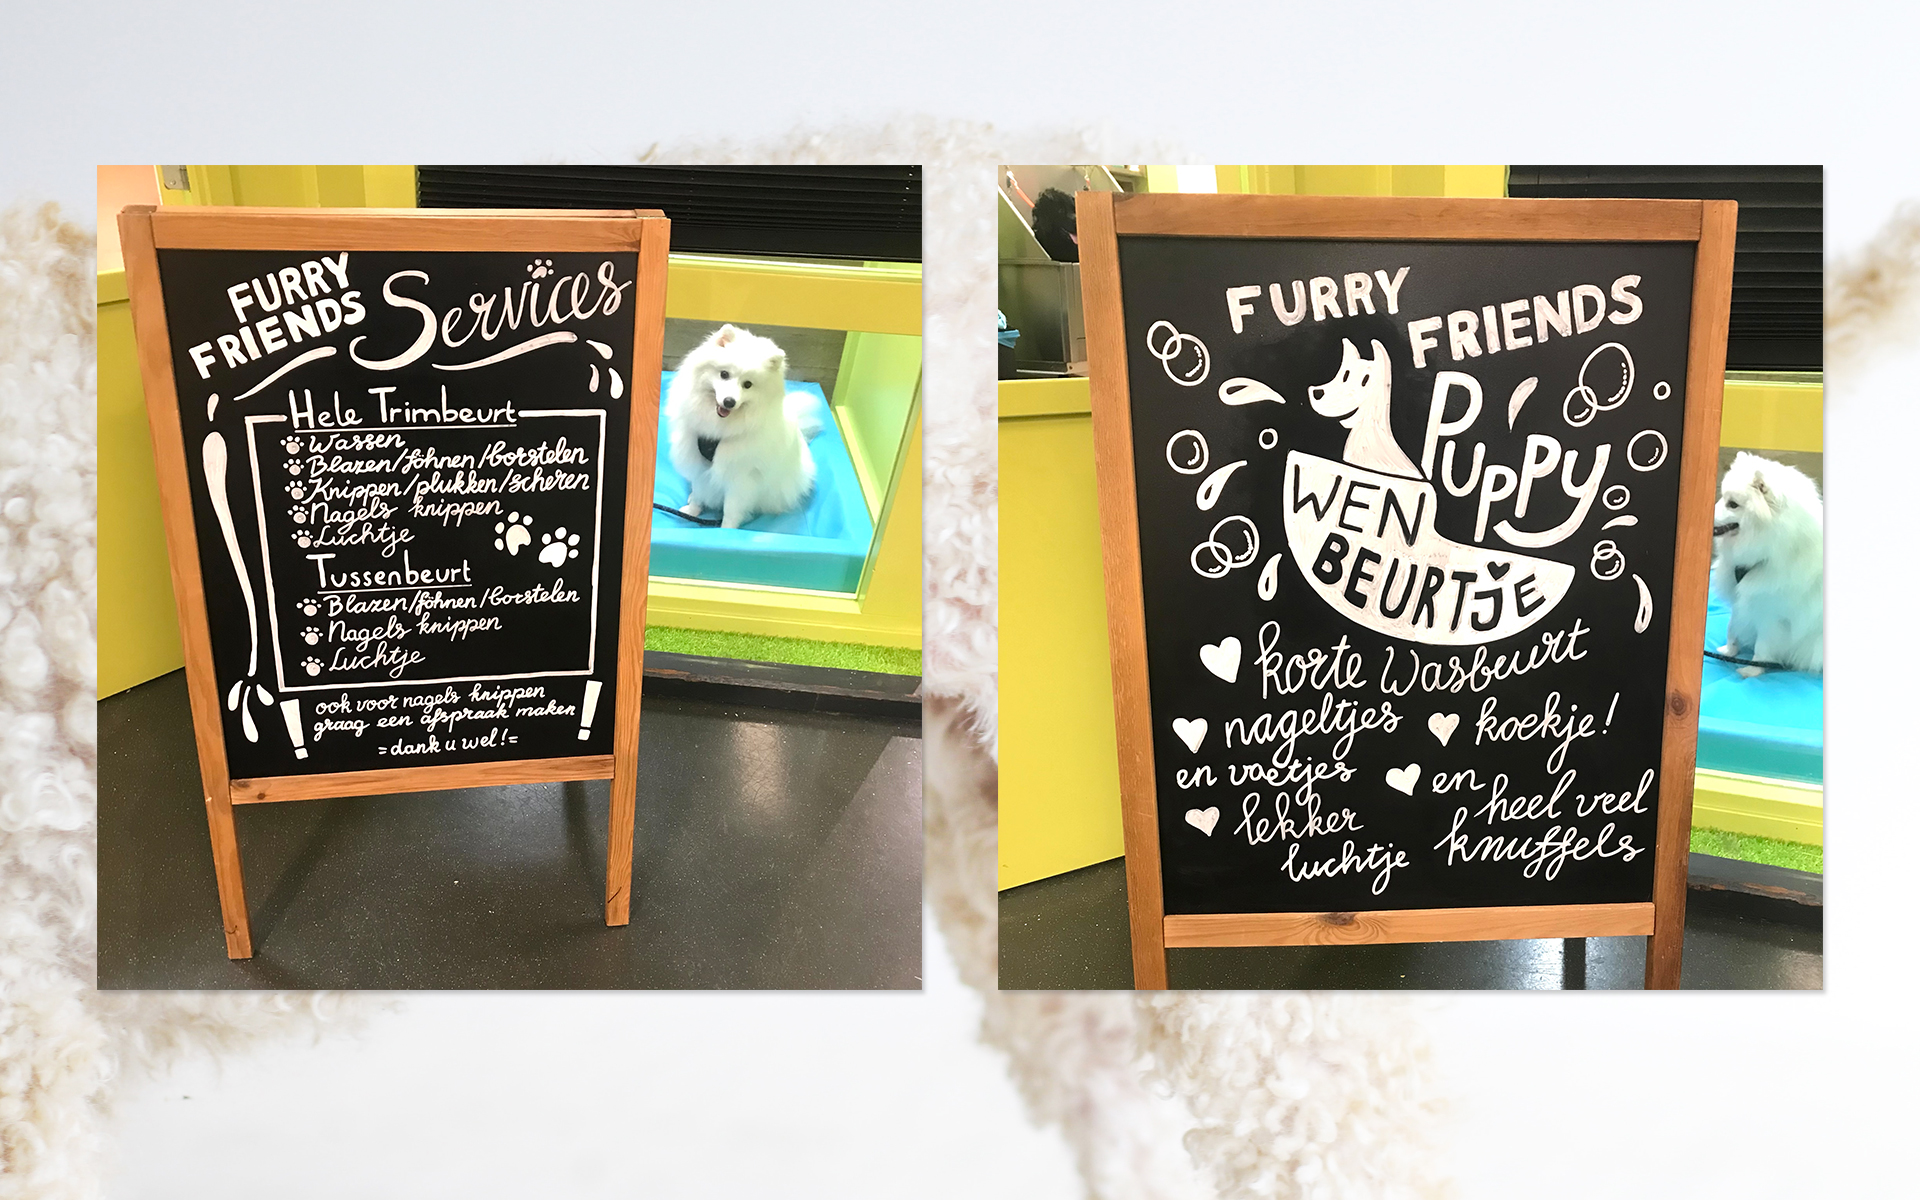 FURRY
FRIENDS Services
Hele Trimbeurt
Wassen
Blazen/föhnen/borstelen
Knippen/plukken/scheren
Nagels knippen
Luchtje
Tussenbeurt
Blazen/föhnen/borstelen
Nagels knippen
Luchtje
ook voor nagels knippen
graag een afspraak maken
=dank u wel!=
FURRY
FRIENDS
Puppy
WEN
BEURTJE
korte Wasbeurt
nageltjes
en voetjes
lekker
luchtje
koekje!
en
heel veel
knuffels